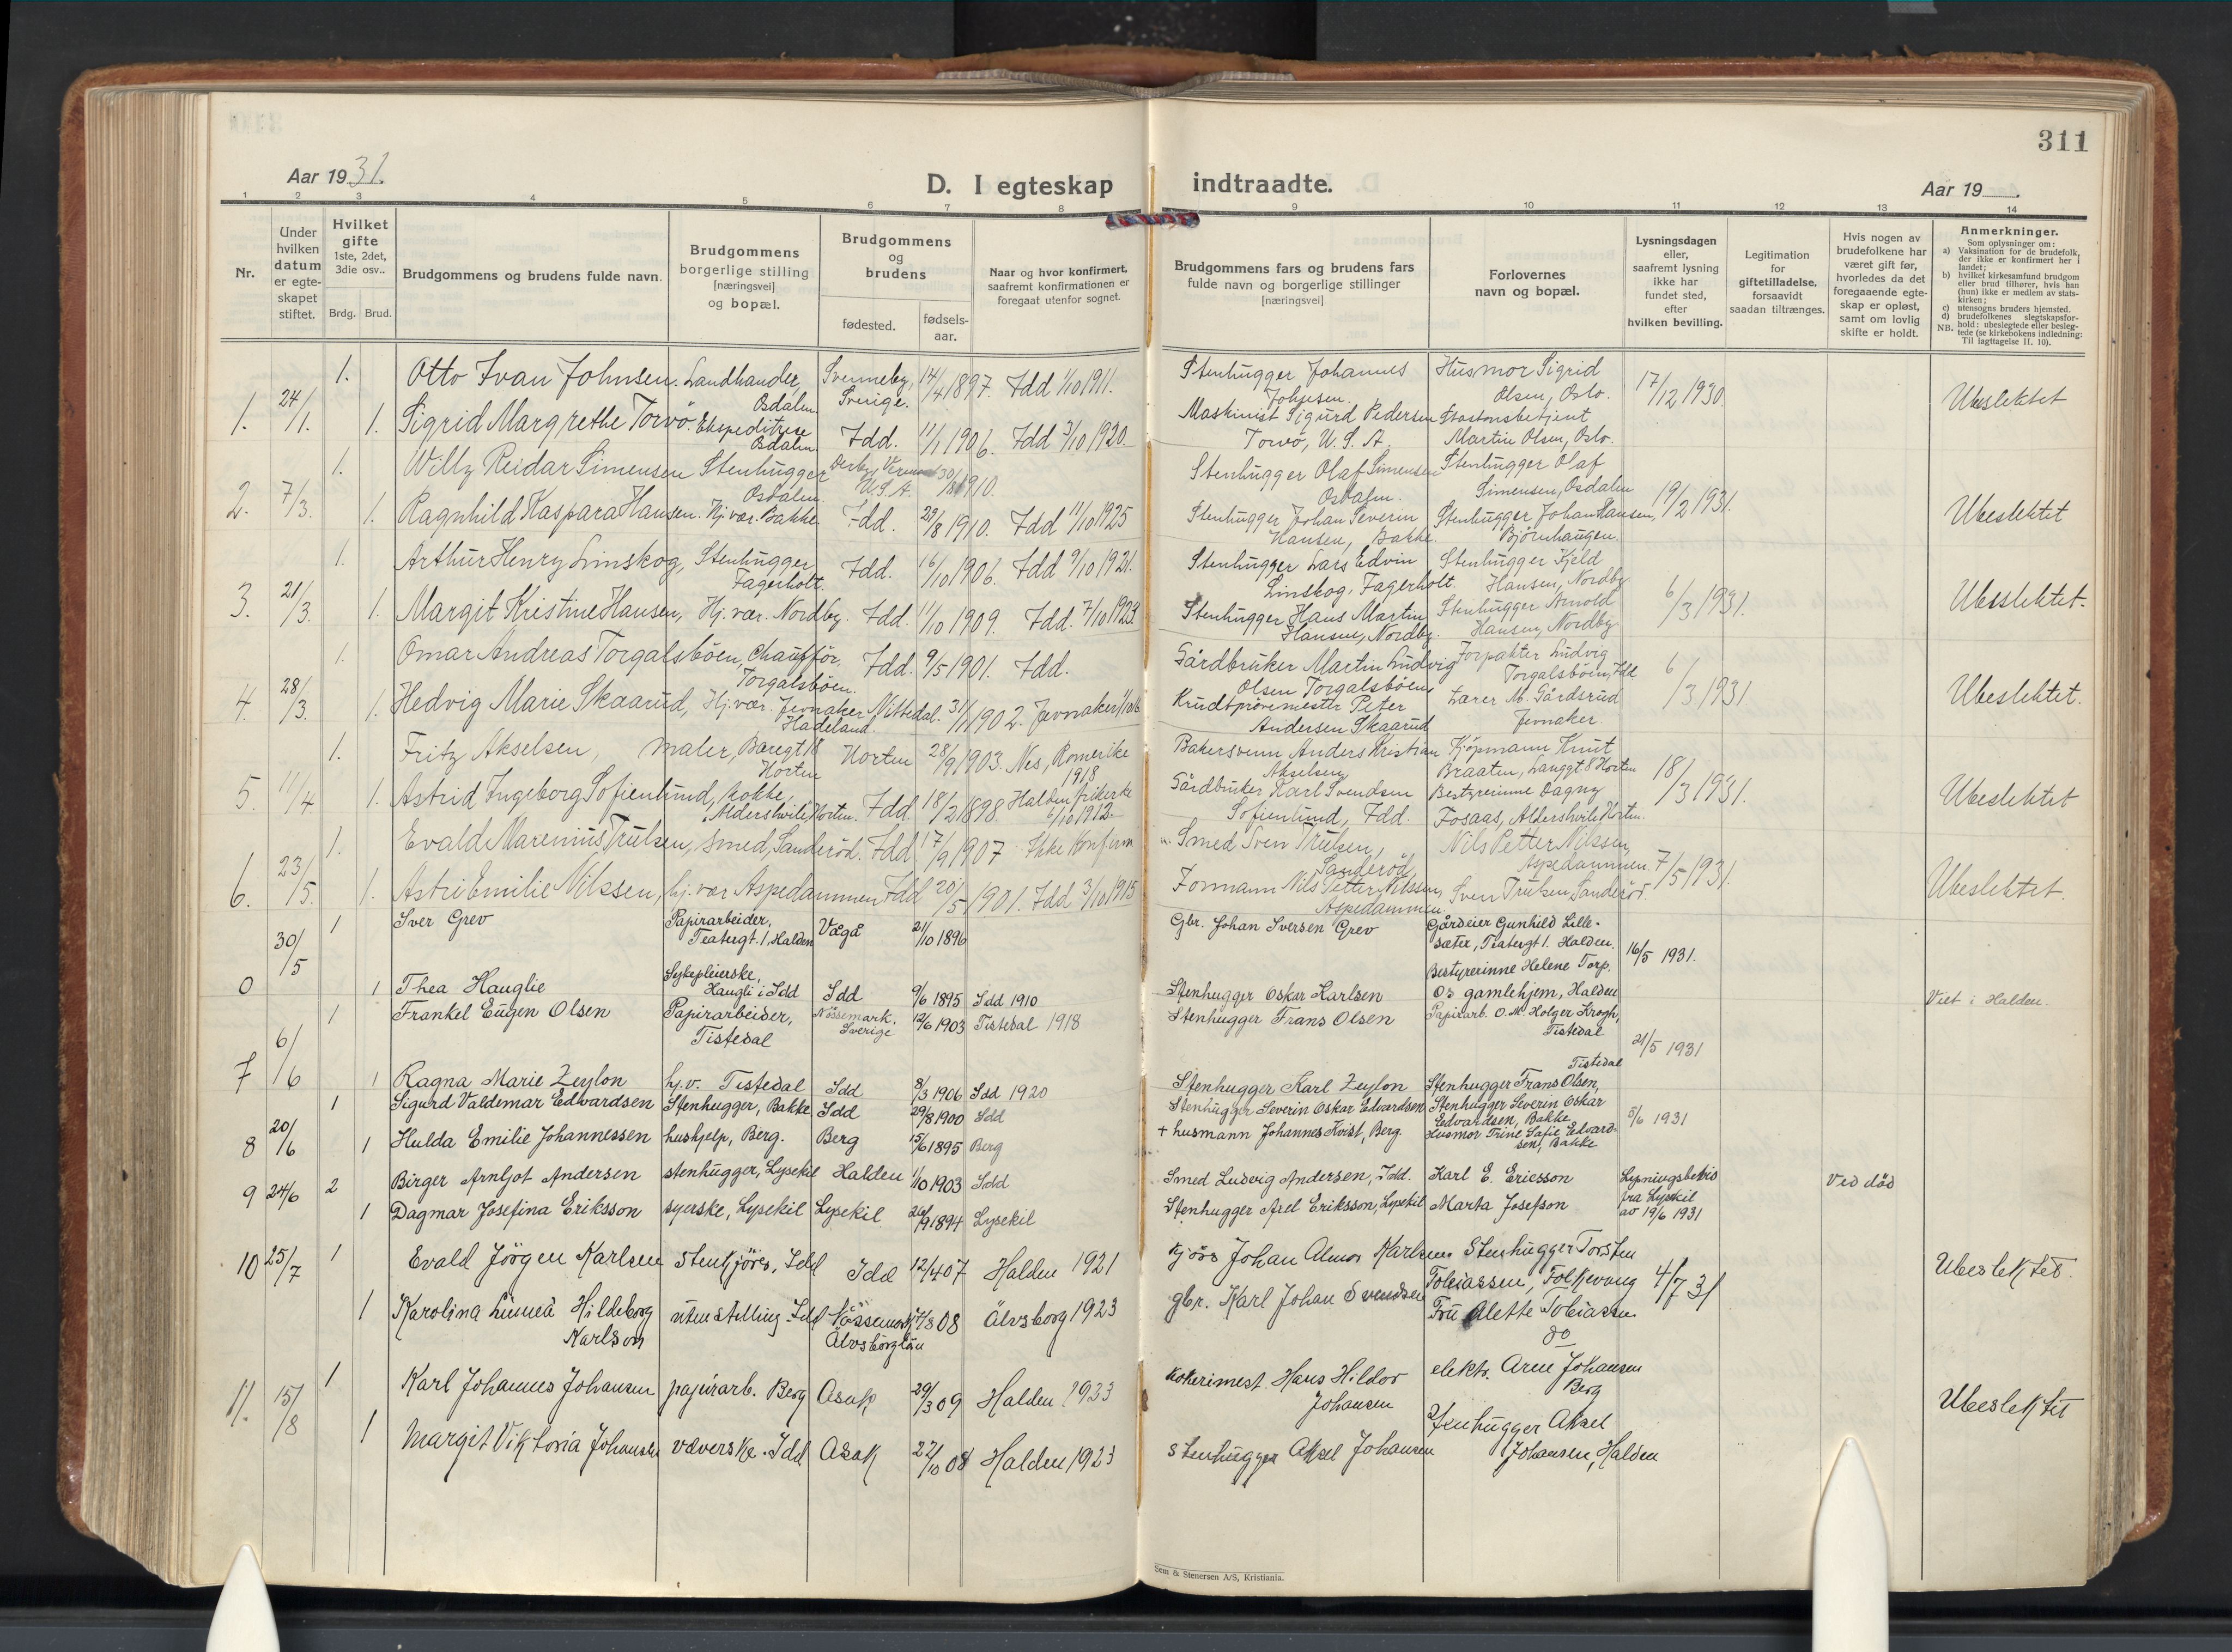 311
Aar 1931.
D. I egteskap indtraadte.
Aar 19
1 2 3 4 5 6 7 8 9 10 11 12 13 14
Nr.
Under hvilken datum er egteskapet stiftet.
Hvilket gifte 1ste, 2det, 3die osv..
Brdg. Brud.
Brudgommens og brudens fulde navn.
Brudgommens borgerlige stilling [næringsvei] og bopæl.
Brudgommens og brudens
fødested.
fødselsaar.
Naar og hvor konfirmert, saafremt konfirmationen er foregaat utenfor sognet.
Brudgommens fars og brudens fars fulde navn og borgerlige stillinger [næringsvei]
Forlovernes navn og bopæl.
Lysningsdagen eller, saafremt lysning ikke har fundet sted, efter hvilken bevilling.
Legitimation for giftetilladelse, forsaavidt saadan tiltrænges.
Hvis nogen av brudefolkene har været gift før, hvorledes da det foregaaende egteskap er opløst, samt om lovlig skifte er holdt.
Anmerkninger.
Som oplysninger om:
a) Vaksination for de brudefolk, der ikke er konfirmert her i landet;
b) hvilket kirkesamfund brudgom eller brud tilhører, hvis han (hun) ikke er medlem av statskirken;
c) utensogns bruders hjemsted.
d) brudefolkenes slegtskapsforhold: ubeslegtede eller beslegtede (se kirkebokens indledning:
NB. Til iagttagelse II. 10).
1. 24/1. 1. Otto Ivan Johnsen. Landhandler, Osdalen. Svenneby, Sverige. 14/4 1897. Idd 1/10 1911. Stenhugger Johannes Johnsen. Husmor Sigrid Olsen, Oslo. 17/12 1930 Ubeslektet
1. Sigrid Margrethe Torvö. Ekspeditrise Osdalen Idd. 11/1 1906. Idd 3/10 1920. Maskinist Sigurd Pedersen Torvö, U.S.A. Stastonsbetjent Martin Olsen, Oslo.
2. 7/3. 1. Willy Reidar Simensen Stenhugger Osdalen. U.S.A. 1910. Stenhugger Olaf Simensen Osdalen. Stenhugger Olaf Simensen, Osdalen 19/2 1931. Ubeslektet
1. Ragnhild Kaspara Hansen. Hj. vær. Bakke Idd. 29/8 1910. Idd 11/10 1925 Stenhugger Johan Severin Hansen, Bakke. Stenhugger Johan Hansen, Björnhaugen.
3. 21/3. 1. Arthur Henry Linskog, Stenhugger, Fagerholt. Idd. 16/10 1906. Idd 9/10 1921. Stenhugger Lars Edvin Linskog, Fagerholt. Stenhugger Kjeld Hansen, Nordby 6/3 1931. Ubesslektet.
1. Margit Kristine Hansen, Hj. vær. Nordby. Idd. 11/10 1909. Idd. 7/10 1923 Stenhugger Hans Martin Hansen, Nordby. Stenhugger Arnold Hansen, Nordby
4. 28/3. 1. Omar Andreas Torgalsböen, Chauffør. Torgalsböen. Idd. 9/5 1901. Idd. Gårdbruker Martin Ludvig Olsen Torgalsböen Forpakter Ludvig Torgalsböen, Idd 6/3 1931 Ubeslektet.
1. Hedvig Marie Skaarud, Hj. vær. Jevnaker Hadeland. Nittedal. 3/1 1902. Jevnaker Krudtprövemester Peter Andersen Skaarud Lærer M. Gårdsrud Jevnaker.
5. 11/4. 1. Fritz Akselsen, Maler, Horten Horten 28/9 1903. Nes, Romerike 1918 Bakersvenn Anders Kristian Akselsen Kjöpmann Knut Braaten, Langgt 8 Horten 18/3 1931. Ubeslektet
1. Astrid Ingeborg Sofienlund, kokke, Aldershvile, Horten. Idd 18/2 1898. Halden frikirke 6/10 1912. Gårdbruker Karl Svendsen Sofienlund, Idd. Bestyrerinne Dagny Fosaas, Aldershvile Horten.
6. 23/5. 1. Evald Marenius Trulsen, Smed, Sanderöd. Idd 17/9 1907 Ikke Konfirm. Smed Sven Trulsen, Sanderöd Nils Petter Nilssen, Aspedammen. 7/5 1931. Ubeslektet.
1. Astri Emilie Nilssen, hj. vær Aspedammen Idd 20/5 1901. Idd 3/10 1915 Formann Nils Petter Nilssen, Aspedammen. Sven Trulsen Sanderöd.
0 30/5 1 Iver Grev Papirarbeider, Teatergt. 1, Halden Vågå 21/10 1896 Gbr. Johan Iversen Grev Gårdeier Gunhild Lillesæter, Teatergt 1. Halden. 16/5 1931.
1 Thea Hauglie Sykepleierske, Haugli i Idd Idd 9/6 1895 Idd 1910 Stenhugger Oskar Karlsen Bestyrerinne Helene Torp, Os gamlehjem, Halden Viet i Halden.
7 6/6 1 Frankel Eugen Olsen Papirarbeider, Tistedal Nössemark, Sverige 12/6 1903 Tistedal 1918 Stenhugger Frans Olsen Papirarb. O.M. Holger Krogh, Tistedal 21/5 1931
1 Ragna Marie Zeylon hj.v. Tistedal Idd 8/3 1906 Idd 1920 Stenhugger Karl Zeylon Stenhugger Frans Olsen, Tistedal
8 20/6 1 Sigurd Valdemar Edvardsen Stenhugger, Bakke Idd 29/8 1900 Idd Stenhugger Severin Oskar Edvardsen Stenhugger Severin Oskar Edvardsen, Bakke 5/6 1931
1 Hulda Emilie Johannessen hushjelp, Berg. Berg 15/6 1895 Berg + husmann Johannes Kvist, Berg. Husmor Trine Sofie Edvardsen, Bakke
9 24/6 2 Birger Arnljot Andersen stenhugger, Lysekil Halden 1/10 1903 Idd Smed Ludvig Andersen, Idd. Karl E. Ericsson Lysningsbevis fra Lysekil av 19/6 1931 Ved död
1 Dagmar Josefina Eriksson syerske, Lysekil Lysekil 26/9 1894 Lysekil Stenhugger Axel Eriksson, Lysekil Marta Josefson
10 25/7 1 Evald Jörgen Karlsen Stenkjörer, Idd Idd 12/4 07 Halden 1921 Kjörer Johan Almar Karlsen Stenhugger Torsten Tobiassen, Folkevang 4/7 31 Ubeslektet.
1 Karolina Linneà Hildeborg Karlson uten stilling Idd Nössemark Älvsborg län 08 Älvsborg 1923 gbr. Karl Johan Svendsen Fru Alette Tobiassen do
11. 15/8 1 Karl Johannes Johansen papirarb. Berg Asak 29/3 09 Halden 1923 Kokerimest. Hans Hildor Johansen elektr. Arne Johansen Berg Ubeslektet
1 Margit Viktoria Johansen væverske. Idd Asak 22/10 08 Halden 1923 Stenhugger Aksel Johansen Stenhugger Aksel Johansen, Halden
Sem & Stenersen A/S, Kristiania.